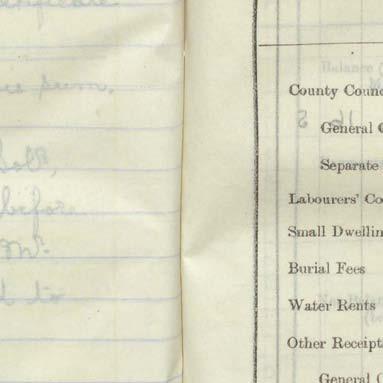 certificate
sum.
Sold,
before
Mr.
d to
Balance
County Counc
General C
Separate
Labourers' Co
Small Dwellin
Burial Fees
Water Rents
Other Receipt
General C